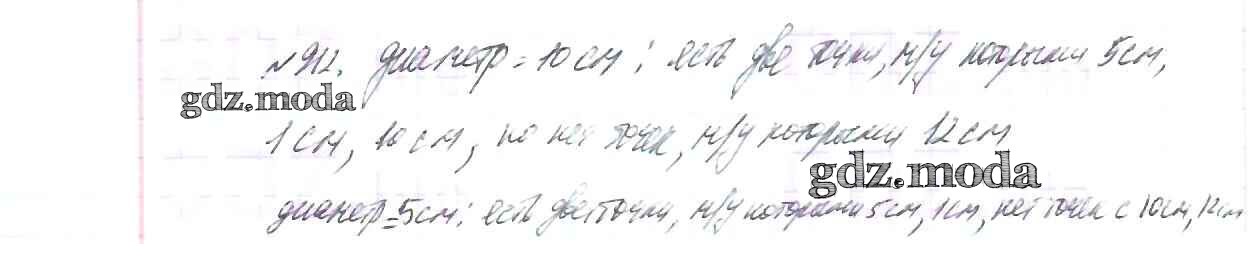 №912. диаметр = 10 см: есть две точки, м/у которыми 5 см,
gdz.moda
1 см, 10 см, но нет точек, м/у которыми 12 см
gdz.moda
диаметр = 5 см: есть две точки, м/у которыми 5 см, 1 см, нет точек с 10 см, 12 см